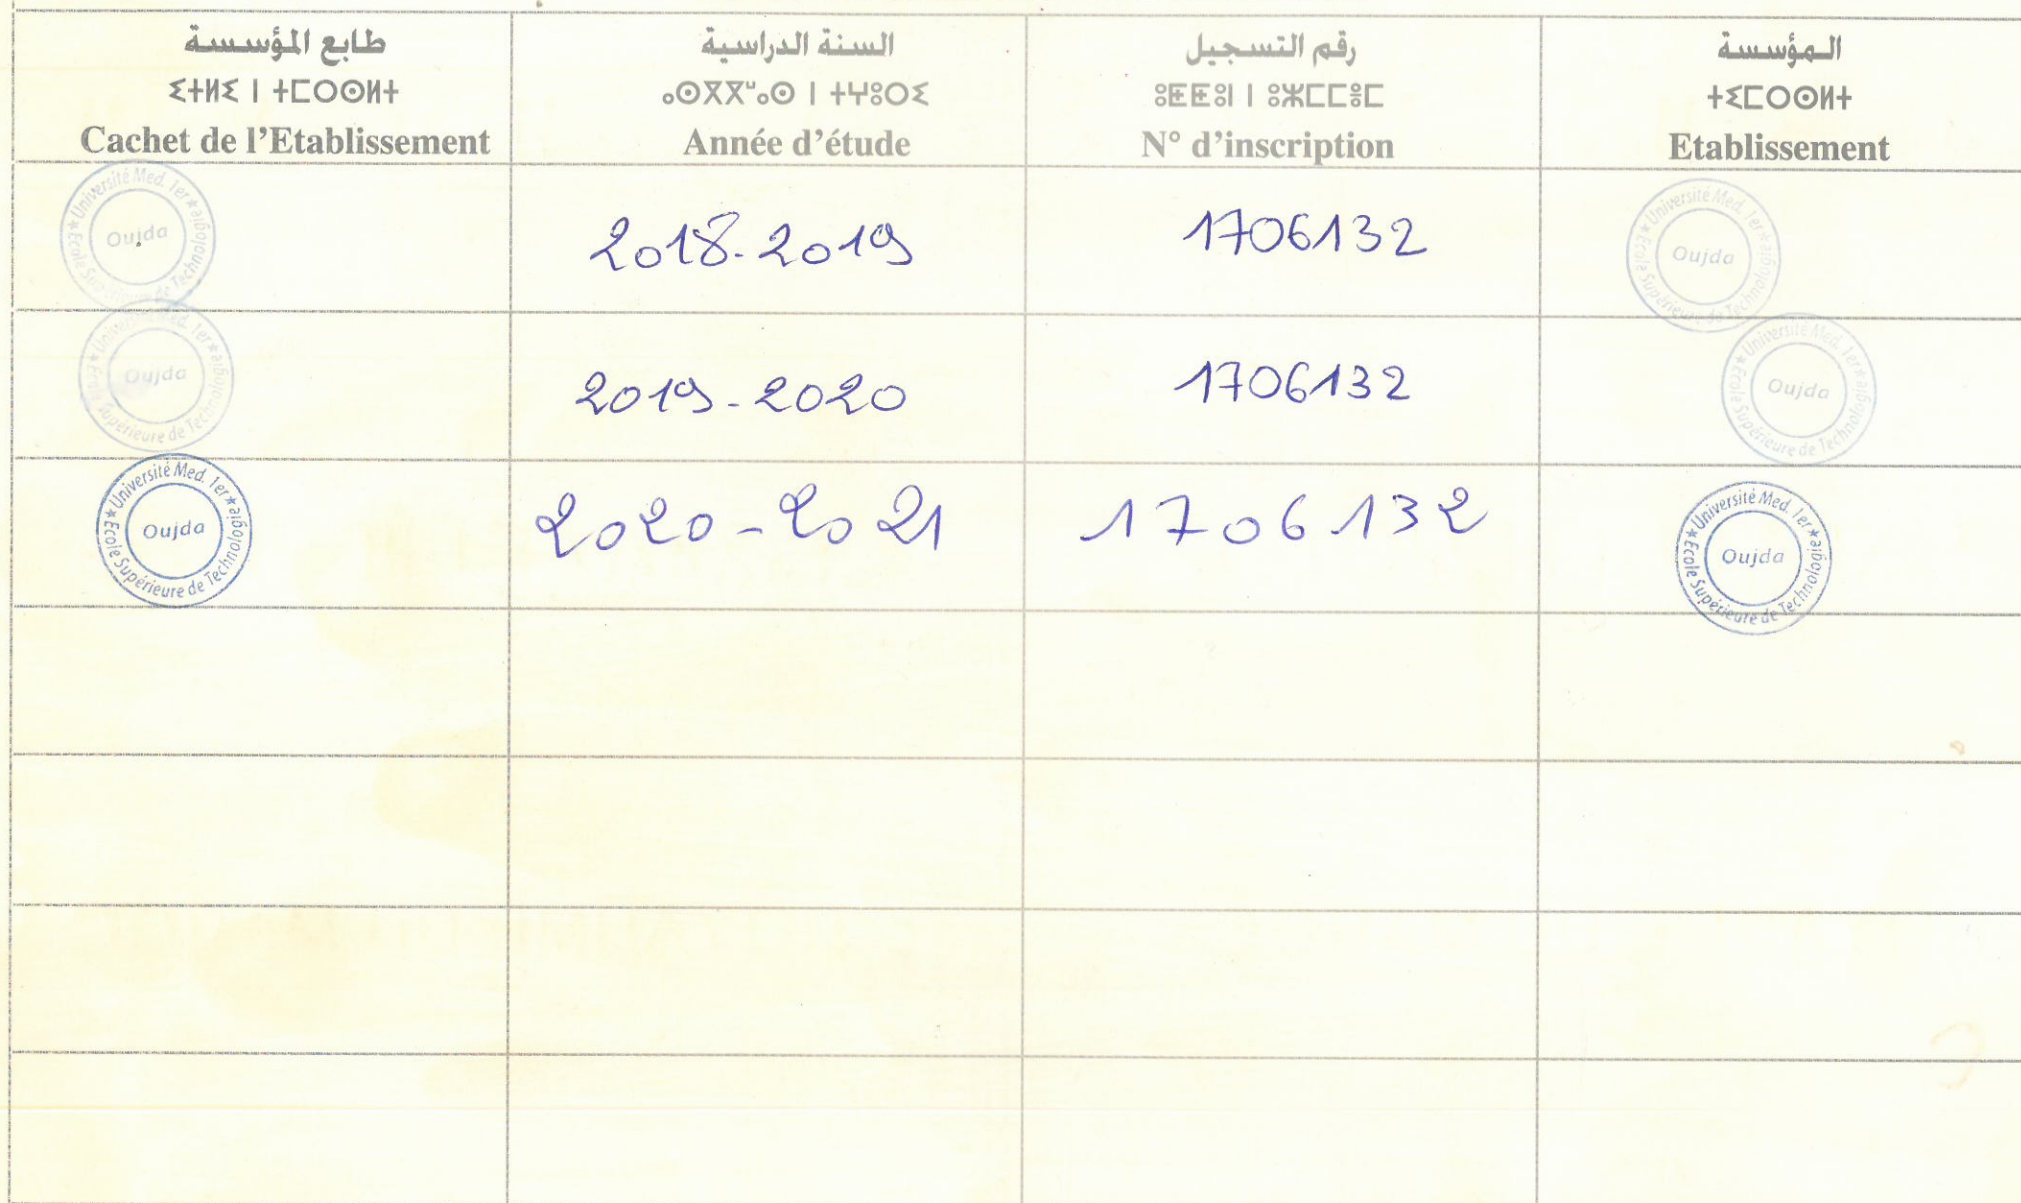 طابع المؤسسة
ⵉⵜⵍⵉ ⵏ ⵜⵎⵔⵙⵍⵜ
Cachet de l'Etablissement
السنة الدراسية
ⴰⵙⴳⴳⵯⴰⵙ ⵏ ⵜⵖⵓⵔⵉ
Année d'étude
رقم التسجيل
ⵓⵟⵟⵓⵏ ⵏ ⵓⵣⵎⵎⵎⵓⵎ
N° d'inscription
المؤسسة
ⵜⵉⵎⵔⵙⵍⵜ
Etablissement
★ Université Med. 1er ★ Ecole Supérieure de Technologie
Oujda
2018-2019
1706132
★ Université Med. 1er ★ Ecole Supérieure de Technologie
Oujda
★ Université Med. 1er ★ Ecole Supérieure de Technologie
Oujda
2019-2020
1706132
★ Université Med. 1er ★ Ecole Supérieure de Technologie
Oujda
★ Université Med. 1er ★ Ecole Supérieure de Technologie
Oujda
2020-2021
1706132
★ Université Med. 1er ★ Ecole Supérieure de Technologie
Oujda